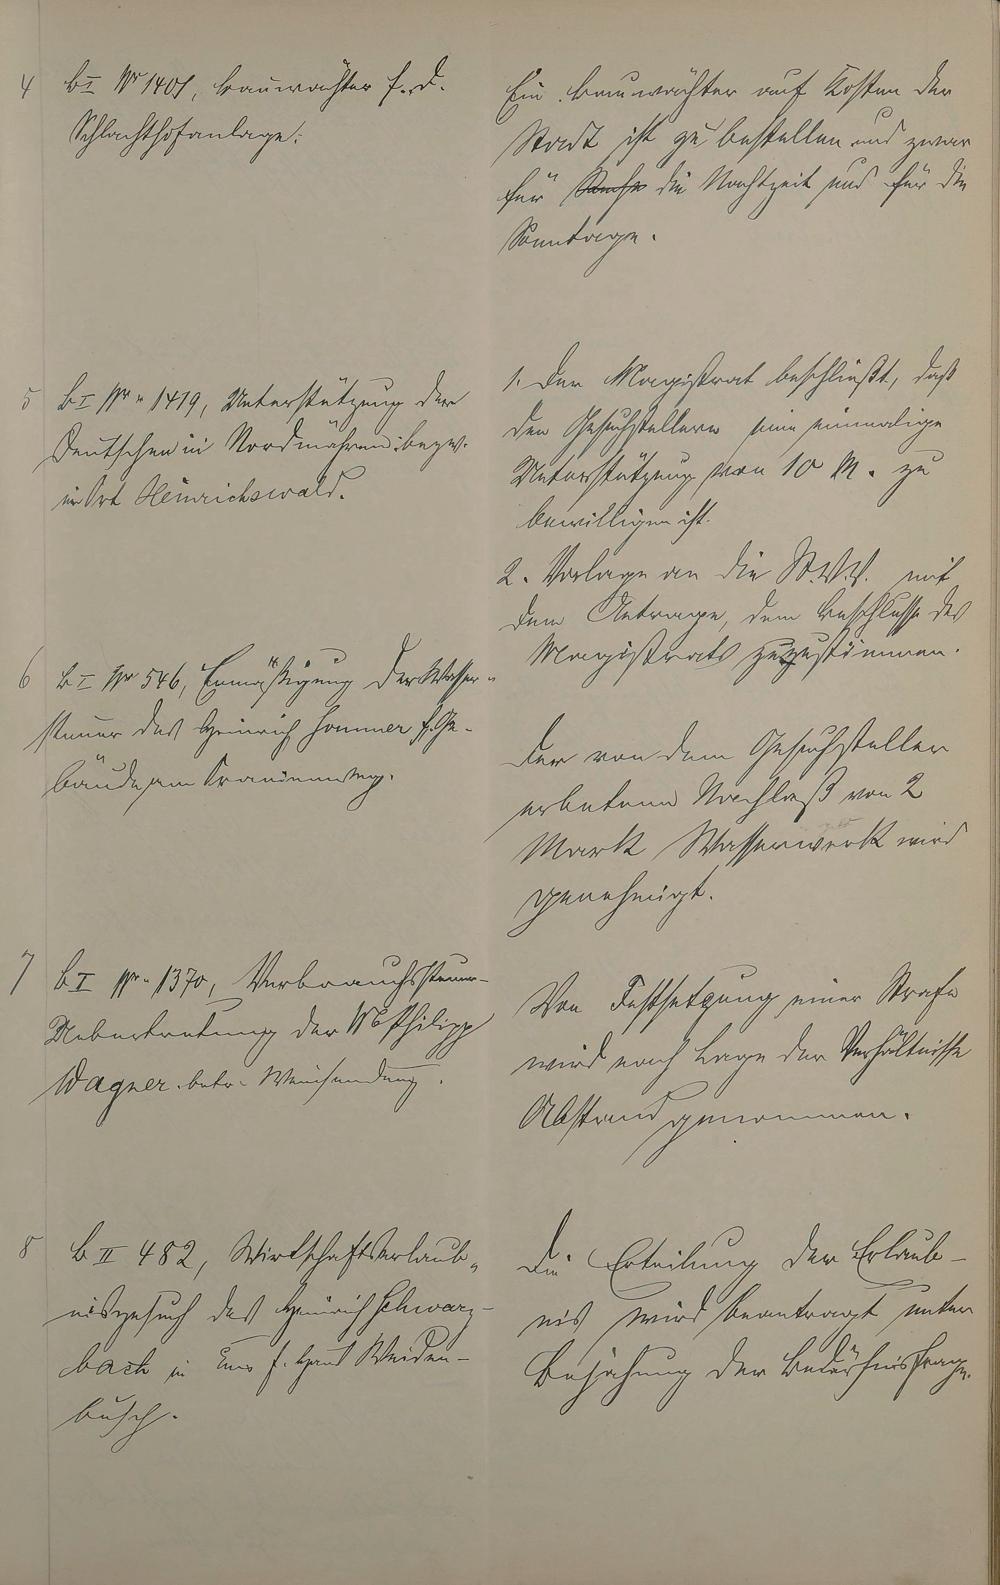 4 B I Nr 1401, Bauwächter f. d.
Schlachthofanlage.
Ein Bauwächter auf Kosten der
Stadt ist zu bestellen und zwar
für die Nachtzeit und für die
Sonntage.
5 B I Nr. 1419, Unterstützung der
Deutschen in Nordmähren bezw.
im Ort Heinrichswald.
1. Der Magistrat beschließt, daß
den Gesuchstellern eine einmalige
Unterstützung von 10 M. zu
bewilligen ist.
2. Vorlage an die St.V.V. mit
dem Antrage, dem Beschlusse des
Magistrats zuzustimmen.
6 B I Nr 546, Ermäßigung der Wasser-
steuer des Heinrich Hommer f. Ge-
bäude am Oranienweg.
Der von dem Gesuchsteller
erbetene Nachlaß von 2
Mark Wasserwerk wird
genehmigt.
7 B I Nr. 1370, Verbrauchssteuer-
Uebertretung der Philipp
Wagner betr. Weinsendung.
Von Festsetzung einer Strafe
wird nach Lage der Verhältnisse
Abstand genommen.
8 B II 482, Wirtschaftserlaub-
nisgesuch des Heinrich Schwarz-
bach in Ems f. Haus Weiden-
busch.
Die Erteilung der Erlaub-
nis wird beantragt unter
Bejahung der Bedürfnisfrage.